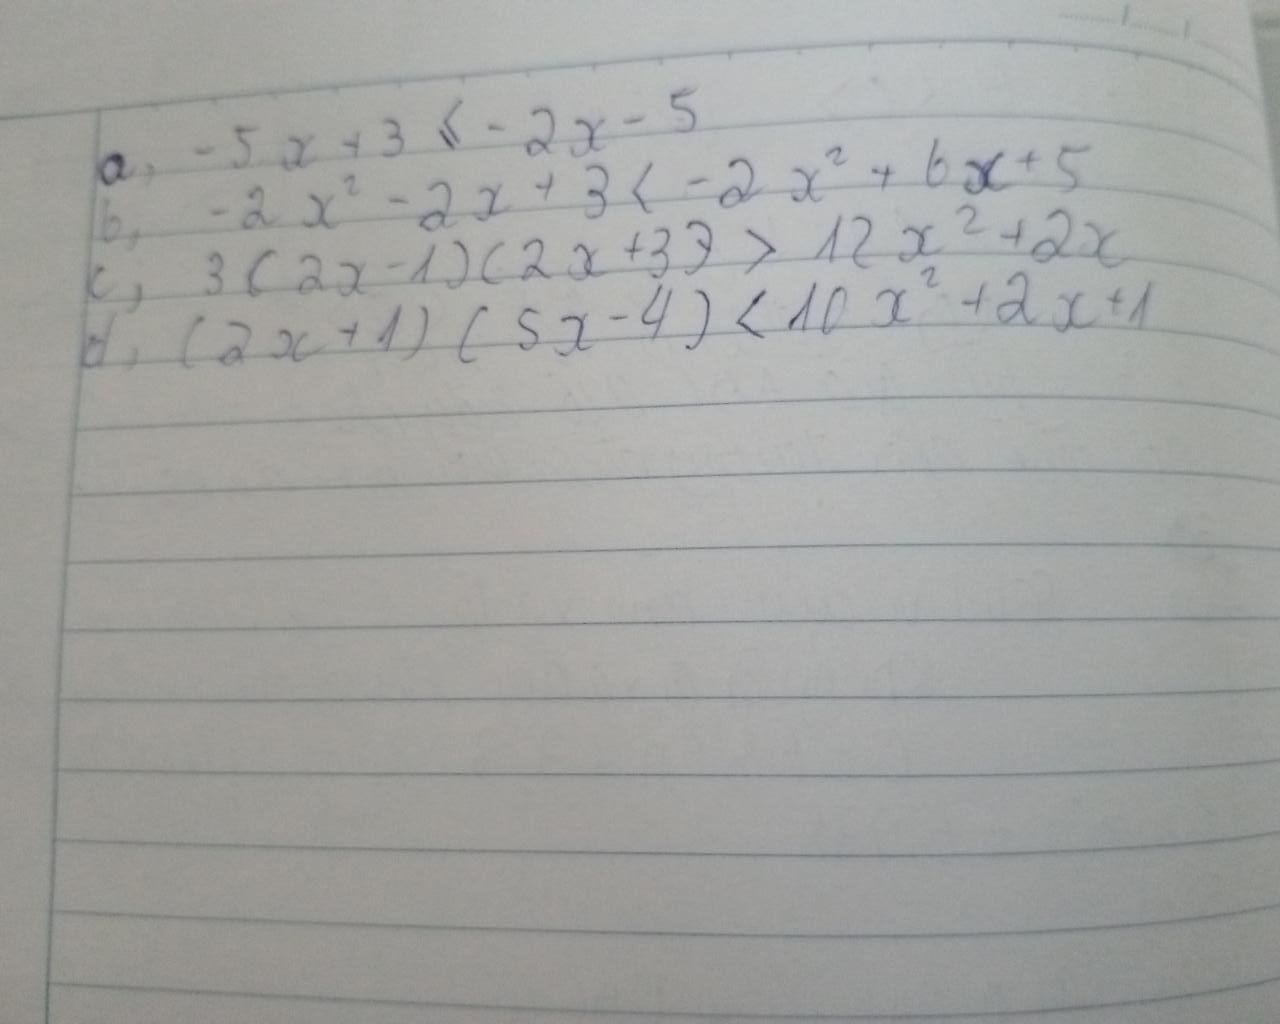 a, -5x + 3 ≤ -2x - 5
b, -2x² - 2x + 3 < -2x² + 6x + 5
c, 3(2x-1)(2x+3) > 12x² + 2x
d, (2x+1)(5x-4) < 10x² + 2x + 1